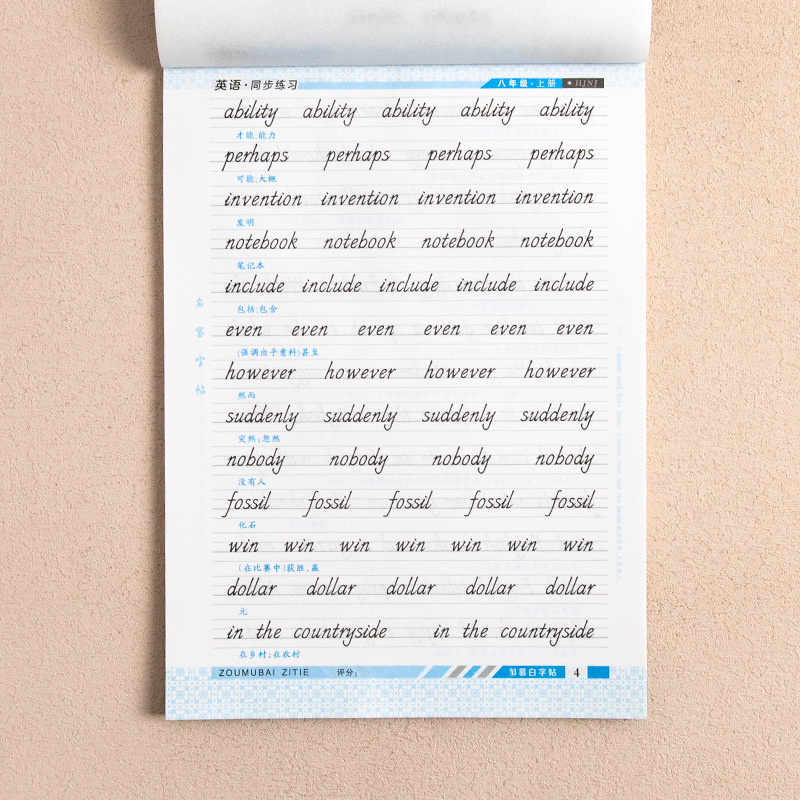 英语·同步练习 八年级·上册 HJNJ
ability ability ability ability ability
才能;能力
perhaps perhaps perhaps perhaps
可能;大概
invention invention invention invention
发明
notebook notebook notebook notebook
笔记本
include include include include include
包括;包含
even even even even even even
(强调出乎意料)甚至
however however however however
然而
suddenly suddenly suddenly suddenly
突然;忽然
nobody nobody nobody nobody
没有人
fossil fossil fossil fossil fossil
化石
win win win win win win win
(在比赛中)获胜,赢
dollar dollar dollar dollar dollar
元
in the countryside in the countryside
在乡村;在农村
名家字帖
ZOUMUBAI ZITIE 评分: 邹慕白字帖 4